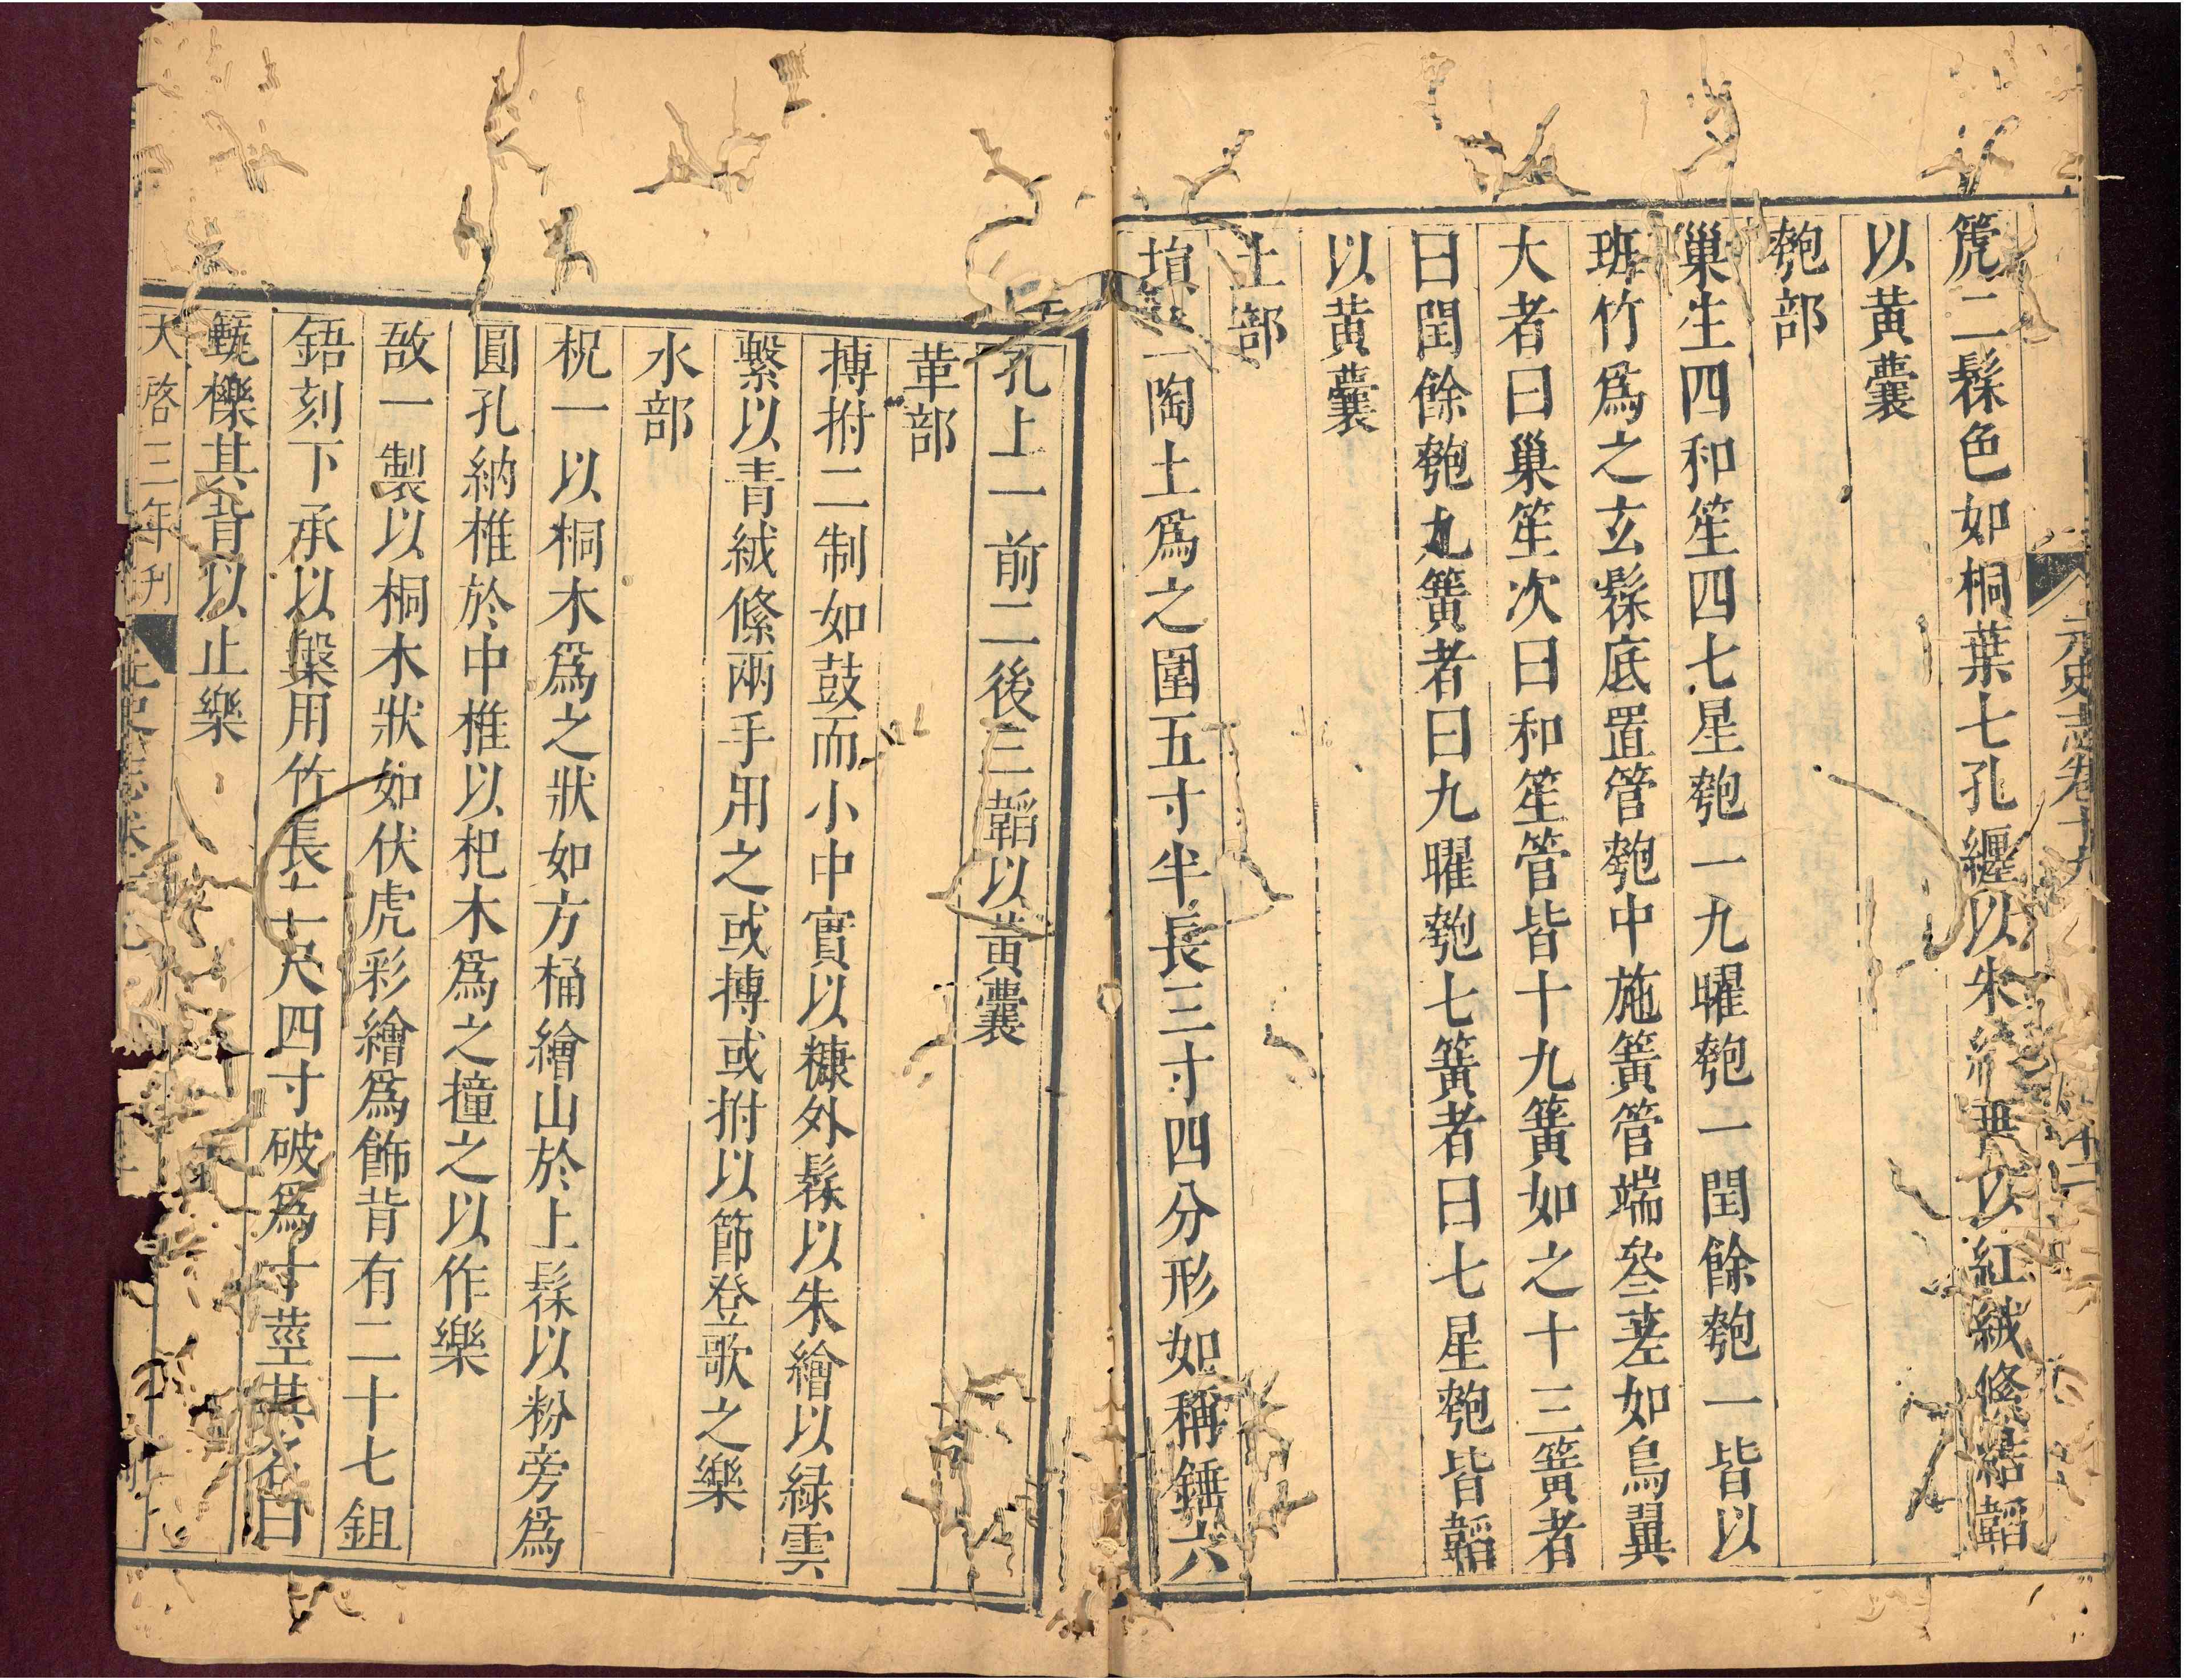 元史志卷十九
篪二髹色如桐葉七孔纏以朱絲垂以紅絨絛結韜
以黃囊
匏部
巢笙四和笙四七星匏一九曜匏一閏餘匏一皆以
斑竹爲之玄髹底置管匏中施簧管端參差如鳥翼
大者曰巢笙次曰和笙管皆十九簧如之十三簧者
曰閏餘匏九簧者曰九曜匏七簧者曰七星匏皆韜
以黃囊
土部
塤一陶土爲之圍五寸半長三寸四分形如稱錘六
孔上一前二後三韜以黃囊
革部
搏拊二制如鼓而小中實以糠外髹以朱繪以緑雲
繫以青絨絛兩手用之或搏或拊以節登歌之樂
木部
柷一以桐木爲之狀如方桶繪山於上髹以粉旁爲
圓孔納椎於中椎以杞木爲之撞之以作樂
敔一製以桐木狀如伏虎彩繪爲飾背有二十七鉏
鋙刻下承以槃用竹長二尺四寸破爲十莖其名曰
籈櫟其背以止樂
天啓三年刊